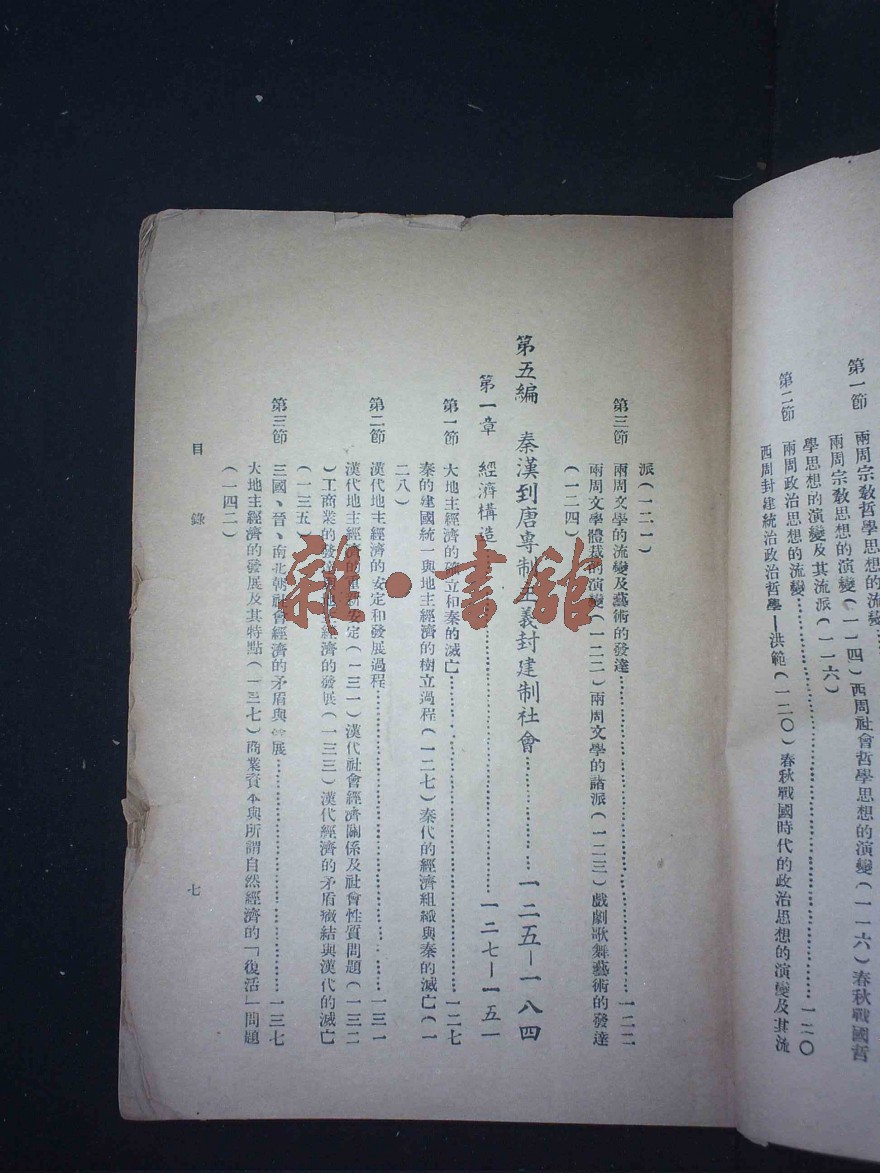 第一節 兩周宗敎哲學思想的流變
兩周宗敎思想的演變(一一四)西周社會哲學思想的演變(一一六)春秋戰國哲
學思想的演變及其流派(一一六)
第二節 兩周政治思想的流變…………一二〇
西周封建統治政治哲學—洪範(一二〇)春秋戰國時代的政治思想的演變及其流
派(一二一)
第三節 兩周文學的流變及藝術的發達…………一二二
兩周文學體裁的演變(一二二)兩周文學的諸派(一二三)戲劇歌舞藝術的發達
(一二四)
第五編 秦漢到唐專制主義封建制社會…………一二五—一八四
第一章 經濟構造…………一二七—一五一
第一節 大地主經濟的確立和秦的滅亡…………一二七
秦的建國統一與地主經濟的樹立過程(一二七)秦代的經濟組織與秦的滅亡(一
二八)
第二節 漢代地主經濟的安定和發展過程…………一三一
漢代地主經濟的重新安定(一三一)漢代社會經濟關係及社會性質問題(一三二
)工商業的發達經濟的發展(一三三)漢代經濟的矛盾癥結與漢代的滅亡
(一三五)
第三節 三國、晉、南北朝社會經濟的矛盾與發展…………一三七
大地主經濟的發展及其特點(一三七)商業資本與所謂自然經濟的「復活」問題
(一四二)
目錄
七
雜·書館